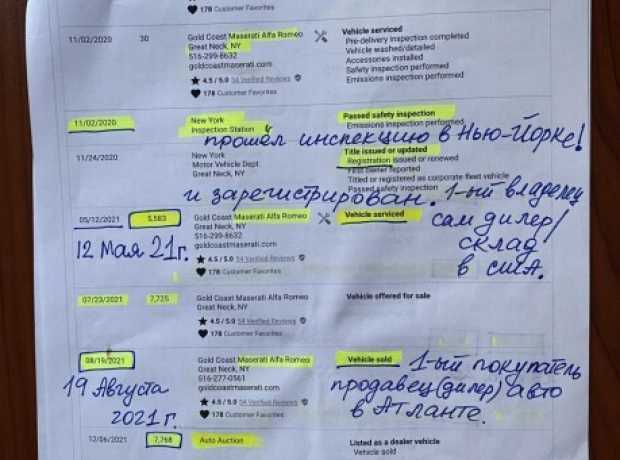 178 Customer Favorites
11/02/2020 30 Gold Coast Maserati Alfa Romeo Vehicle serviced
Great Neck, NY Pre-delivery inspection completed
516-299-8632 Vehicle washed/detailed
goldcoastmaserati.com Accessories installed
4.5 / 5.0 54 Verified Reviews Safety inspection performed
178 Customer Favorites Emissions inspection performed
11/02/2020 New York Passed safety inspection
Inspection Station Emissions inspection performed
прошёл инспекцию в Нью-Йорке!
11/24/2020 New York Title issued or updated
Motor Vehicle Dept. Registration issued or renewed
Great Neck, NY First owner reported
Titled or registered as corporate fleet vehicle
Passed safety inspection
и зарегистрирован. 1-ый владелец
05/12/2021 5,583 Gold Coast Maserati Alfa Romeo Vehicle serviced
Great Neck, NY
516-299-8632
goldcoastmaserati.com
4.5 / 5.0 54 Verified Reviews
178 Customer Favorites
12 Мая 21г.
сам дилер/
склад
в сша.
07/23/2021 7,725 Gold Coast Maserati Alfa Romeo Vehicle offered for sale
Great Neck, NY
4.5 / 5.0 54 Verified Reviews
178 Customer Favorites
08/19/2021 Gold Coast Maserati Alfa Romeo Vehicle sold
Great Neck, NY
516-277-0561
goldcoastmaserati.com
4.5 / 5.0 54 Verified Reviews
178 Customer Favorites
19 Августа
2021г.
1-ый покупатель
продавец(дилер) авто
в Атланте.
12/06/2021 7,768 Auto Auction Listed as a dealer vehicle
Vehicle sold